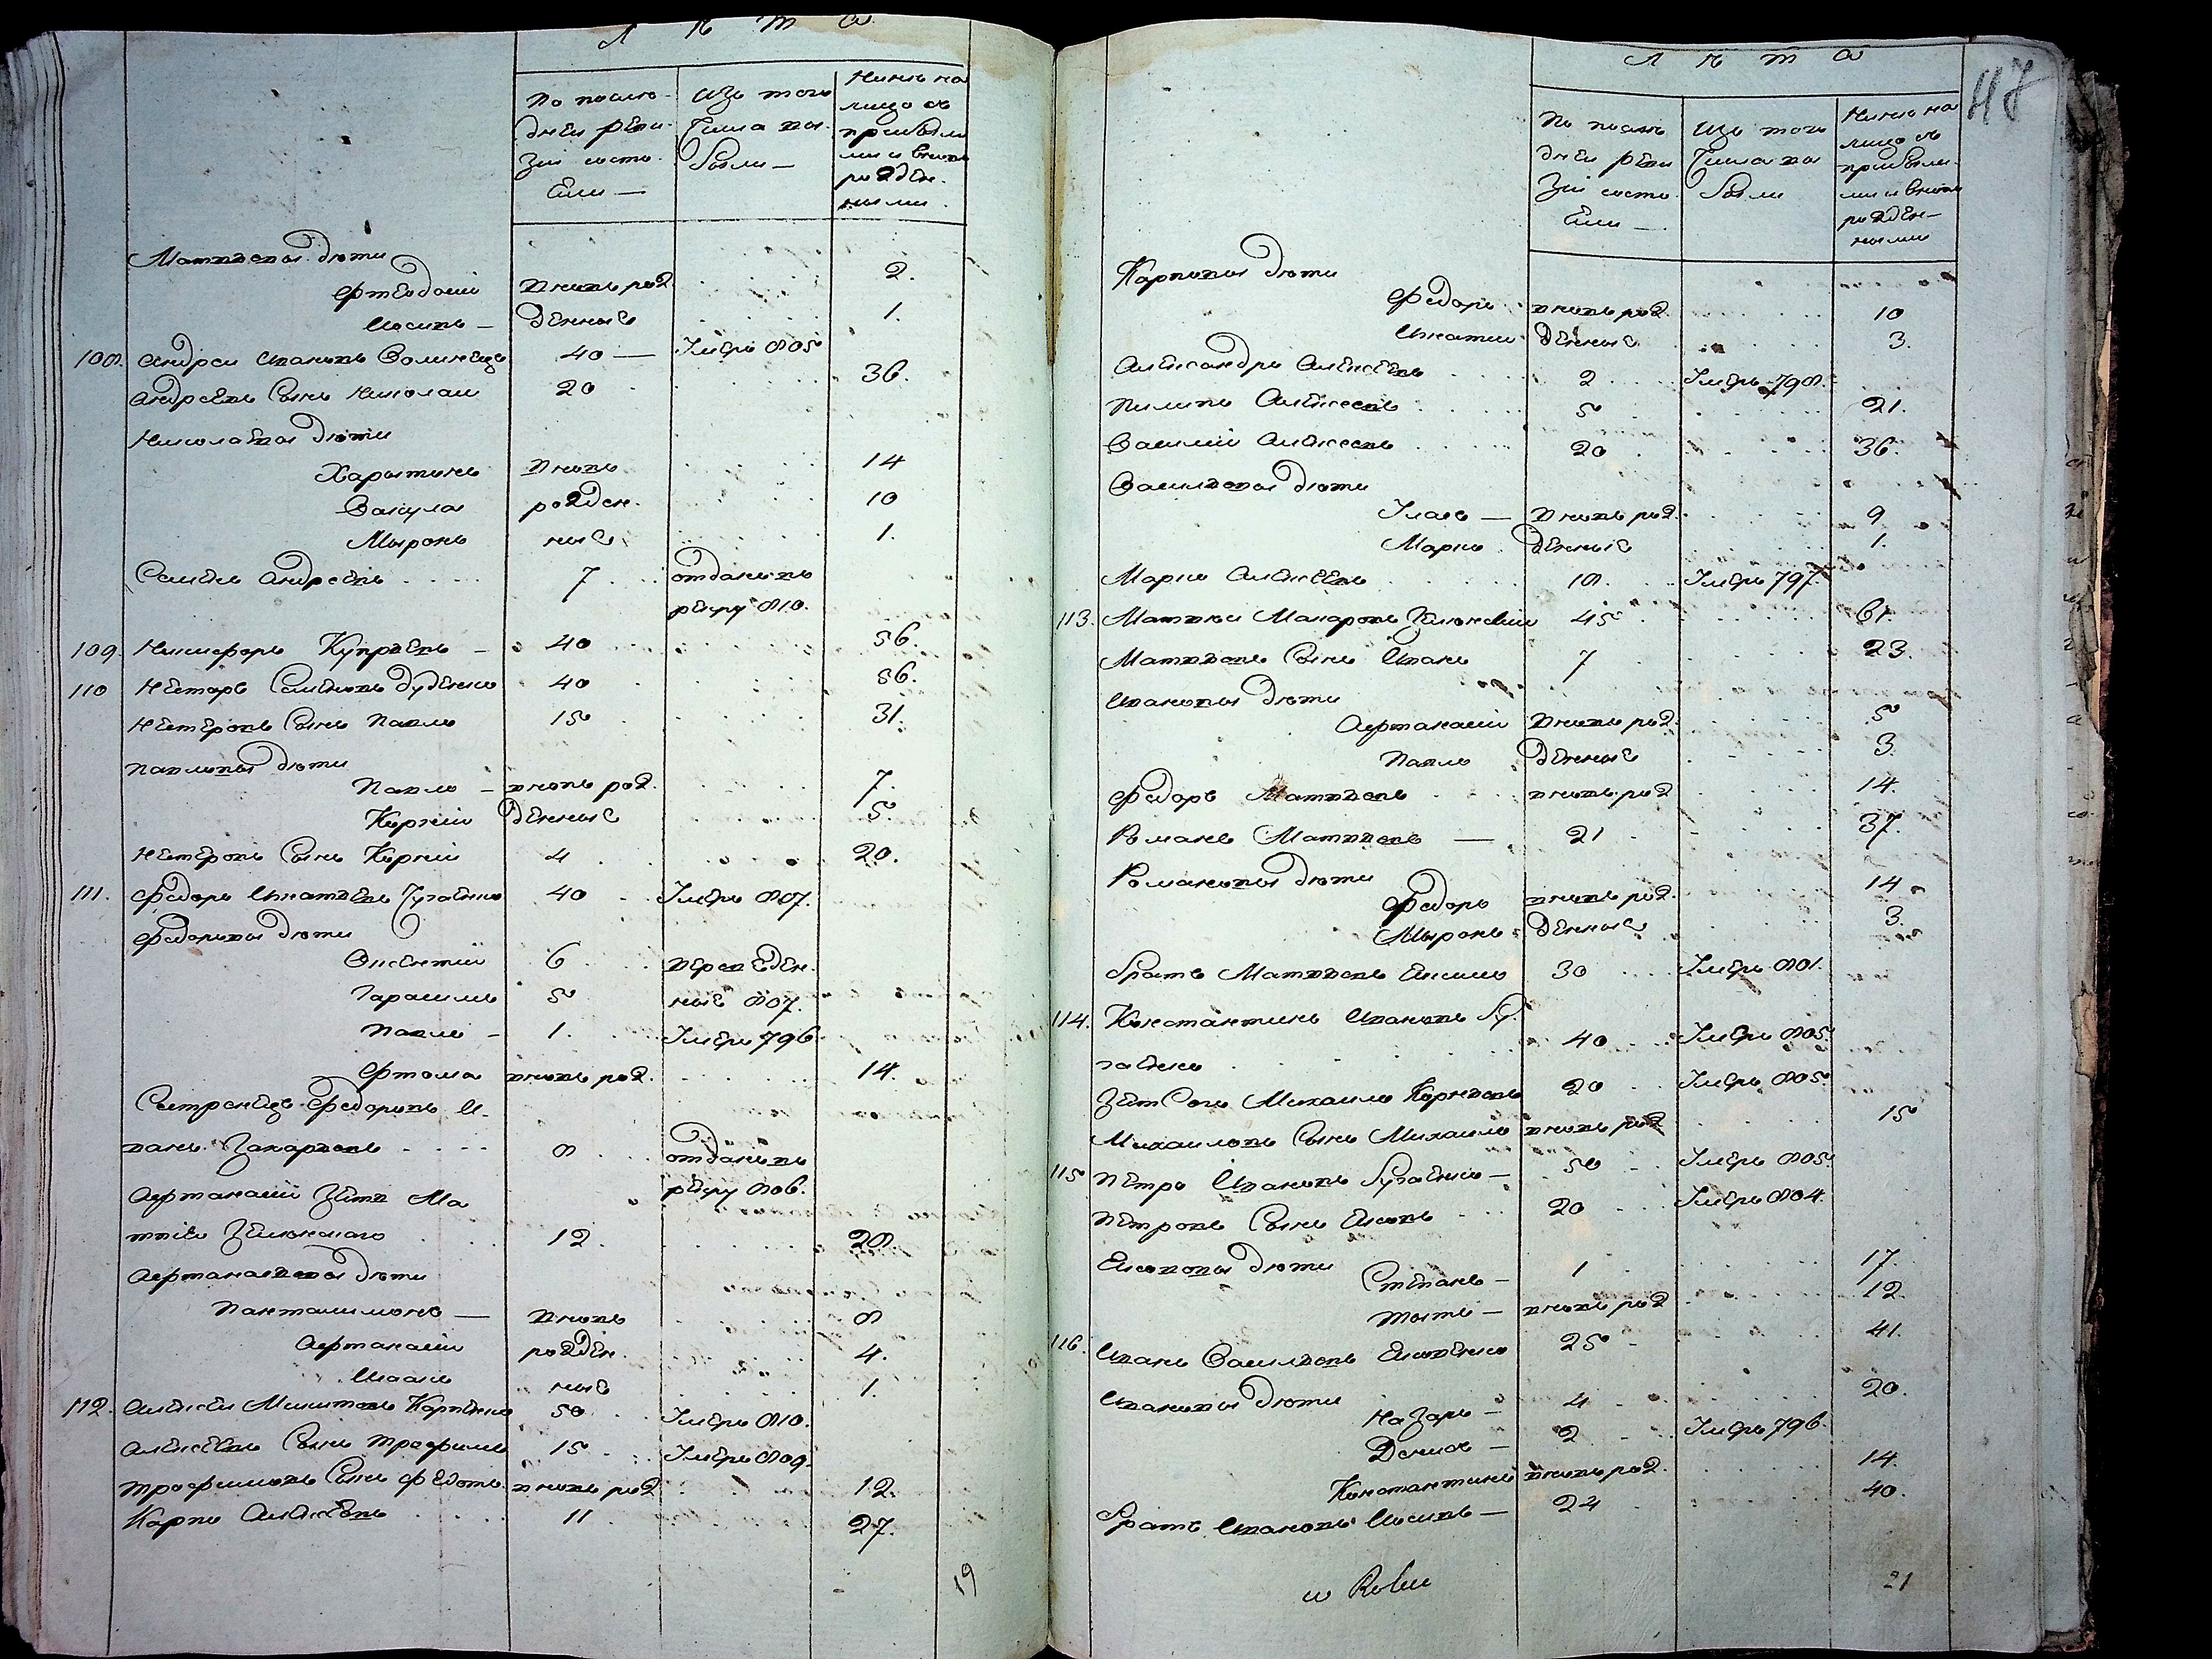 Лѣта
По послѣ- | Изъ того | Нынѣ на
дней реви- | числа вы- | лицо съ
зіи состо- | были — | прибылы-
яли — | | ми и вновь
рожден-
ными
Матвѣевы дѣти
Фтеодосій вновь рож- 2.
Иосипъ — денные 1.
108. Андрей Ивановъ Волинецъ 40 — умеръ 805
Андреевъ сынъ Николай 20 36.
Николаевы дѣти
Харытинъ вновь 14
Вакула рожден- 10
Мыронъ ные 1.
Семенъ Андреевъ 7 отданъ въ
рекру 810.
109. Никифоръ Купрѣевъ — 40 56.
110 Несторъ Семеновъ Дуденко 40 56.
Нестеровъ сынъ Павло 15 31.
Павловы дѣти
Павло — вновь рож. 7.
Кирѣій денные 5.
Нестеровъ сынъ Кирѣій 4 20.
111. Федоръ Игнатьевъ Чугаенко 40 умеръ 807.
Федоровы дѣти
Виктентій 6 переведен-
Гарасимъ 5 ные 807.
Павло — 1. умеръ 796
Фтома вновь рож. 14.
Сестренецъ Федоровъ И-
ванъ Захарьевъ 8 отданъ въ
рекру 806.
Афтанасій зять Ма
твія Зеленского 12. 28
Афтанасьевы дѣти
Панталимонъ — вновь 8
Афтанасій рожден- 4.
Исаакъ ные 1.
112. Алексѣй Микитовъ Карпенко 50 умеръ 810.
Алексѣевъ сынъ Трофимъ 15 умеръ 809.
Трофимовъ сынъ Федотъ вновь рож. 12.
Карпо Алексѣевъ 11 27.
19
117
Лѣта
По послѣ- | Изъ того | Нынѣ на
дней реви- | числа вы- | лицо съ
зіи состо- | были | прибылы-
яли — | | ми и вновь
рожден-
ными
Карповы дѣти
Федоръ вновь рож. 10
Игнатій денные 3.
Александръ Алексѣевъ 2 умеръ 798.
Пилипъ Алексѣевъ 5 21.
Василій Алексѣевъ 20 36.
Васильевы дѣти
Уласъ — вновь рож. 9
Марко денные 1.
Марко Алексѣевъ 18. умеръ 797.
113. Матвѣй Макаровъ Зеленскій 45 61.
Матвѣевъ сынъ Иванъ 7 23.
Ивановы дѣти
Афтанасій вновь рож. 5
Павло денные 3
Федоръ Матвѣевъ вновь рож 14.
Романъ Матвѣевъ — 21 37.
Романовы дѣти
Федоръ вновь рож. 14
Мыронъ денные 3.
Братъ Матвѣевъ Екимъ 30 умеръ 801.
114. Константинъ Ивановъ Бу-
гаенко 40 умеръ 805.
Зять его Михайло Корнѣевъ 20 умеръ 805.
Михайловъ сынъ Михайло вновь рож 15
115 Петро Ивановъ Бугаенко — 50 умеръ 805.
Петровъ сынъ Яковъ 20 умеръ 804.
Яковы дѣти
Степанъ — 1 17.
Тытъ — вновь рож 12
116. Иванъ Васильевъ Яковенко 25 41.
Ивановы дѣти
Назаръ — 4 20.
Денисъ — 2 умеръ 796.
Константинъ вновь рож. 14.
Братъ Ивановъ Иосипъ — 24 40.
21